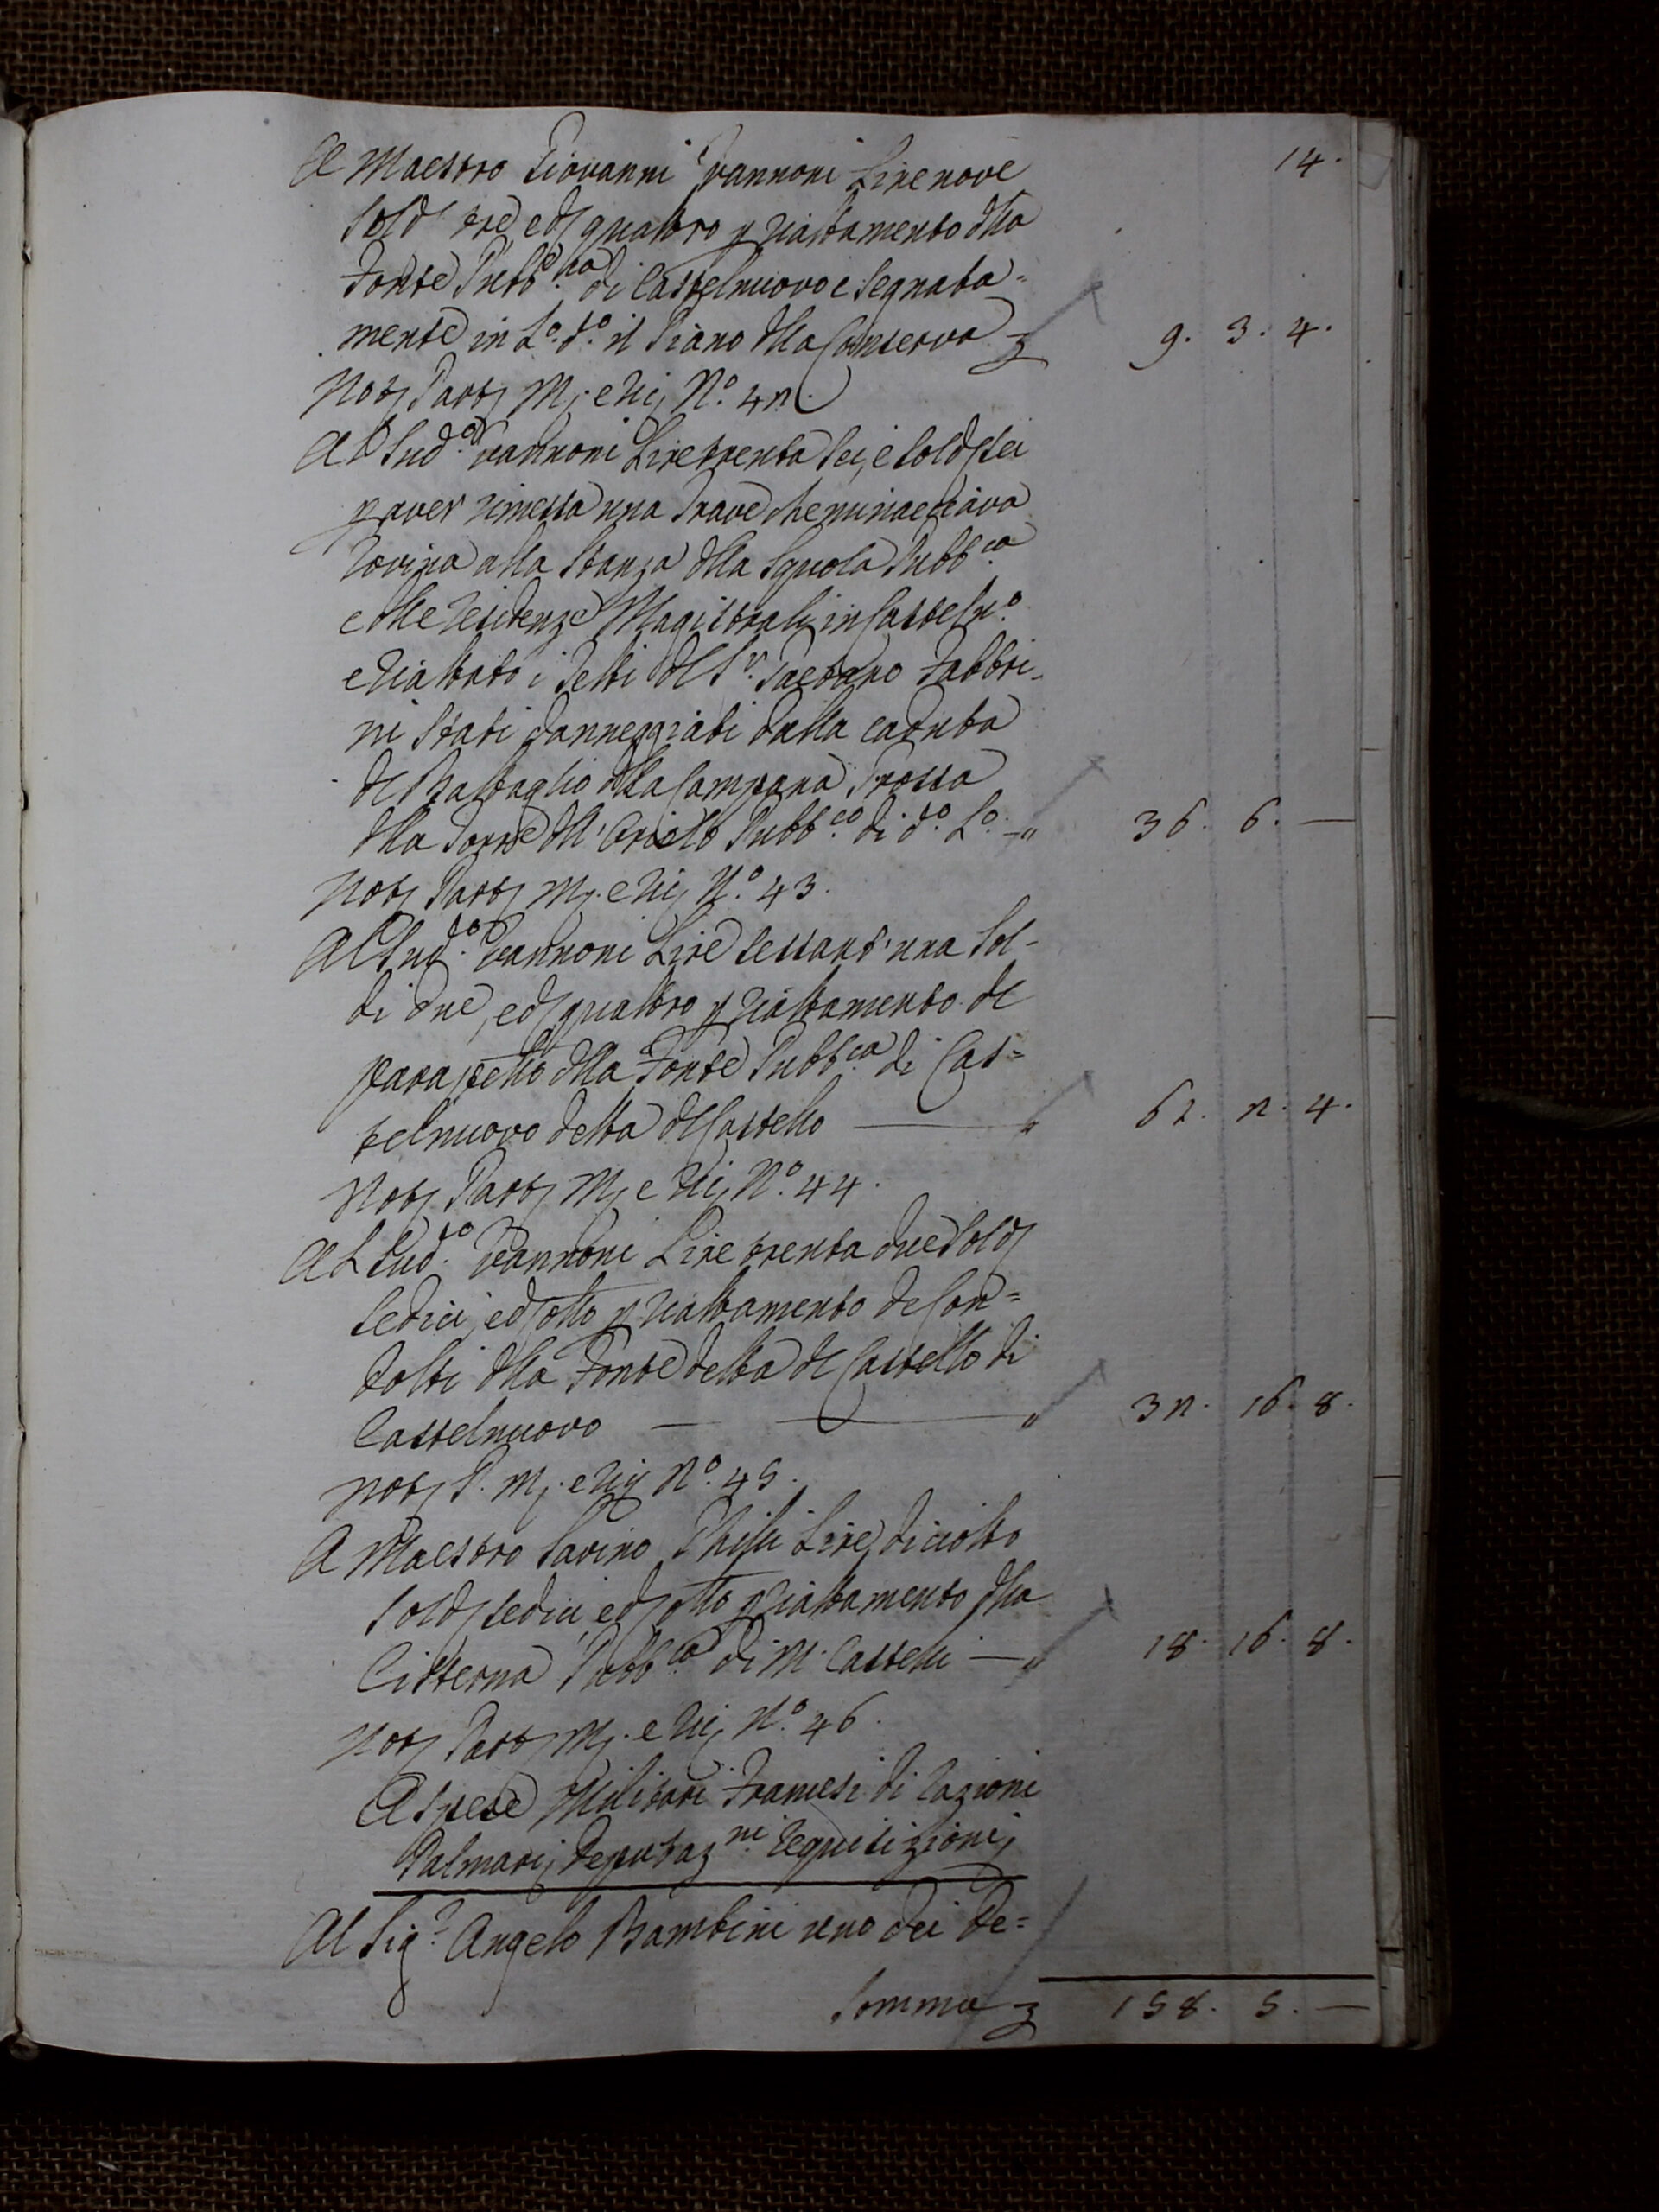 14.
A Maestro Giovanni Vannoni Lire nove
Sold tre e d quattro p riattamento dlla
Fonte Pubb.ca di Castelnuovo e segnata=
mente in L.o d.o il Piano dlla Conserva 9. 3. 4.
Not Part M. e Ric N.o 42.
Al Sud.o Vannoni Lire trenta sei, e sold sei
p aver rimessa una Trave che minacciava
Rovina alla Stanza dlla Squola Pubb.ca
e dlle Residenze Magistrali in Casteln.o
e riattato i Tetti dl S.r Gaetano Fabbri-
ni stati danneggiati dalla caduta
dl Battaglio dlla Campana Grossa
dlla Torre dll' Oriolo Pubb.co di d.o L.o - „ 36. 6. —
Not Part M. e Ric N.o 43.
Al Sud.to Vannoni Lire sessant'una Sol-
di due, e d quattro p riattamento dl
parapetto dlla Fonte Pubb.ca di Cas=
telnuovo detta dl Castello — „ 61. 2. 4.
Not Part M. e Ric N.o 44.
Al Sud.to Vannoni Lire trenta due Sold
sedici, e d otto p riattamento de Con=
dotti dlla Fonte detta dl Castello di
Castelnuovo — — „ 32. 16. 8.
Not P. M. e Ric N.o 45.
A Maestro Savino Lire diciotto
Sold sedici, e d otto p riattamento dlla
Cisterna Pubb.ca di M. Castelli — „ 18. 16. 8.
Not Part M. e Ric N.o 46.
A Spese Militari Francesi di Razioni
Palmari, Deputaz.ni Requisizioni,
Al Sig.r Angelo Bambini uno dei De=
Somma 158. 5. —